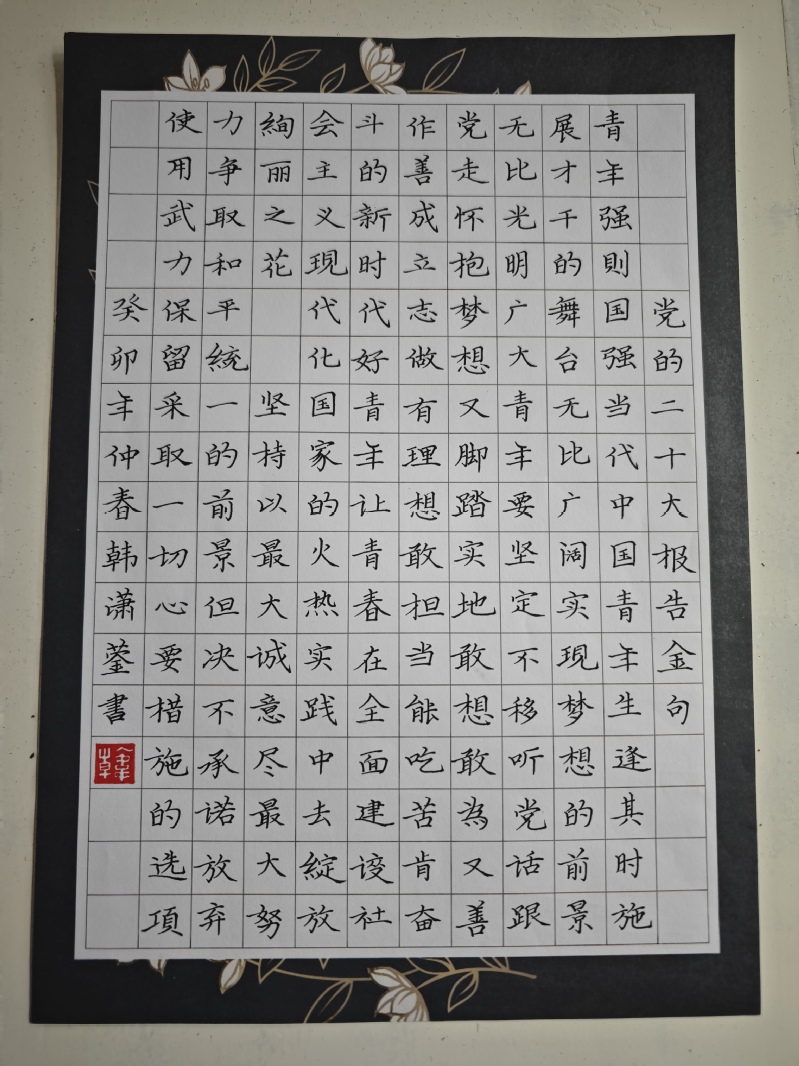 党的二十大报告金句
青年强則国强当代中国青年生逢其时施
展才干的舞台无比广阔实現梦想的前景
无比光明广大青年要坚定不移听党话跟
党走怀抱梦想又脚踏实地敢想敢為又善
作善成立志做有理想敢担当能吃苦肯奋
斗的新时代好青年让青春在全面建设社
会主义現代化国家的火热实践中去綻放
絢丽之花 坚持以最大诚意尽最大努
力争取和平統一的前景但决不承诺放弃
使用武力保留采取一切心要措施的选項
癸卯年仲春韩潇蓥書